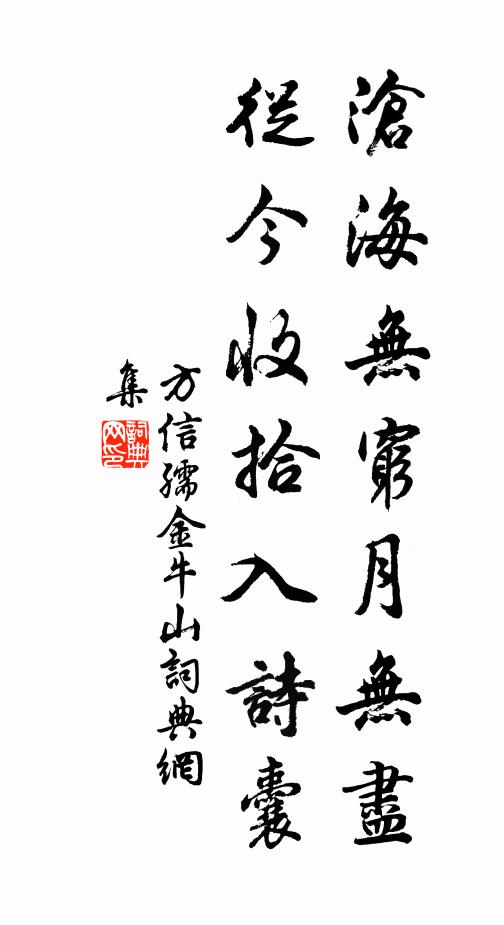 滄海無窮月無盡
從今收拾入詩囊
方信孺金牛山詞典網
集
詞典
网印